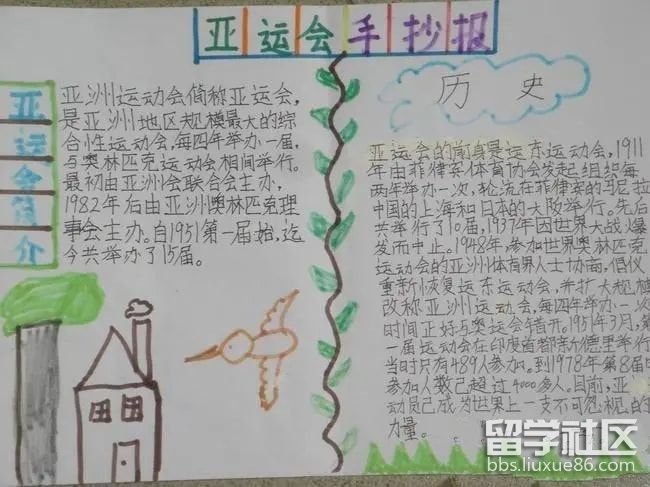 亚运会手抄报
亚运会简介
亚洲运动会简称亚运会,
是亚洲地区规模最大的综
合性运动会,每四年举办一届,
与奥林匹克运动会相间举行。
最初由亚洲运动会联合会主办,
1982年后由亚洲奥林匹克理
事会主办。自1951第一届始,迄
今共举办了15届。
历史
亚运会的前身是远东运动会,1911
年由菲律宾体育协会发起组织每
两年举办一次,轮流在菲律宾的马尼拉
中国的上海和日本的大阪举行。先后
共举行了10届,1937年因世界大战爆
发而中止。1948年,参加世界奥林匹克
运动会的亚洲体育界人士协商,倡仪
重新恢复远东运动会,并扩大规模
改称亚洲运动会,每四年举办一次
时间正好与奥运会错开.1951年3月,第
一届运动会在印度首都新德里举行
当时只有489人参加。到1978年第8届时
参加人数已超过4000多人。目前,亚
动员已成为世界上一支不可忽视的
力量。
留学社区
bbs.liuxue86.com